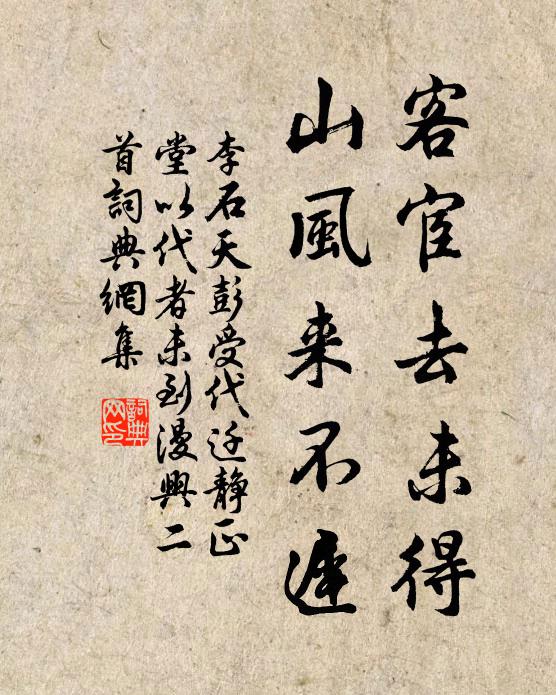 客宦去未得
山風来不遲
李石天彭受代迁靜正
堂以代者未到漫興二
首詞典網集
詞典
网印